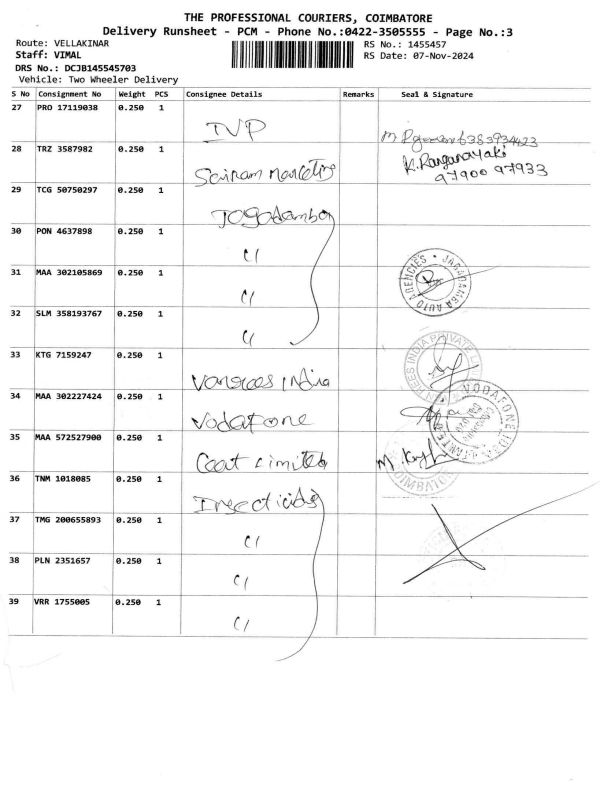 THE PROFESSIONAL COURIERS, COIMBATORE
Delivery Runsheet - PCM - Phone No.:0422-3505555 - Page No.:3
Route: VELLAKINAR
RS No.: 1455457
Staff: VIMAL
RS Date: 07-Nov-2024
DRS No.: DCJB145545703
Vehicle: Two Wheeler Delivery
S No Consignment No Weight PCS Consignee Details Remarks Seal & Signature
27 PRO 17119038 0.250 1
IVP
6383934423
28 TRZ 3587982 0.250 1
Sairam
K. Ranganayaki
97900 97933
29 TCG 50750297 0.250 1
Jagadamba
30 PON 4637898 0.250 1
C/
JAGADAMBA AUTO AGENCIES
31 MAA 302105869 0.250 1
C/
32 SLM 358193767 0.250 1
C/
33 KTG 7159247 0.250 1
India
34 MAA 302227424 0.250 1
Vodafone
VODAFONE IDEA
35 MAA 572527900 0.250 1
Coat Limited
36 TNM 1018085 0.250 1
Insecticids
37 TMG 200655893 0.250 1
C/
38 PLN 2351657 0.250 1
C/
39 VRR 1755005 0.250 1
C/